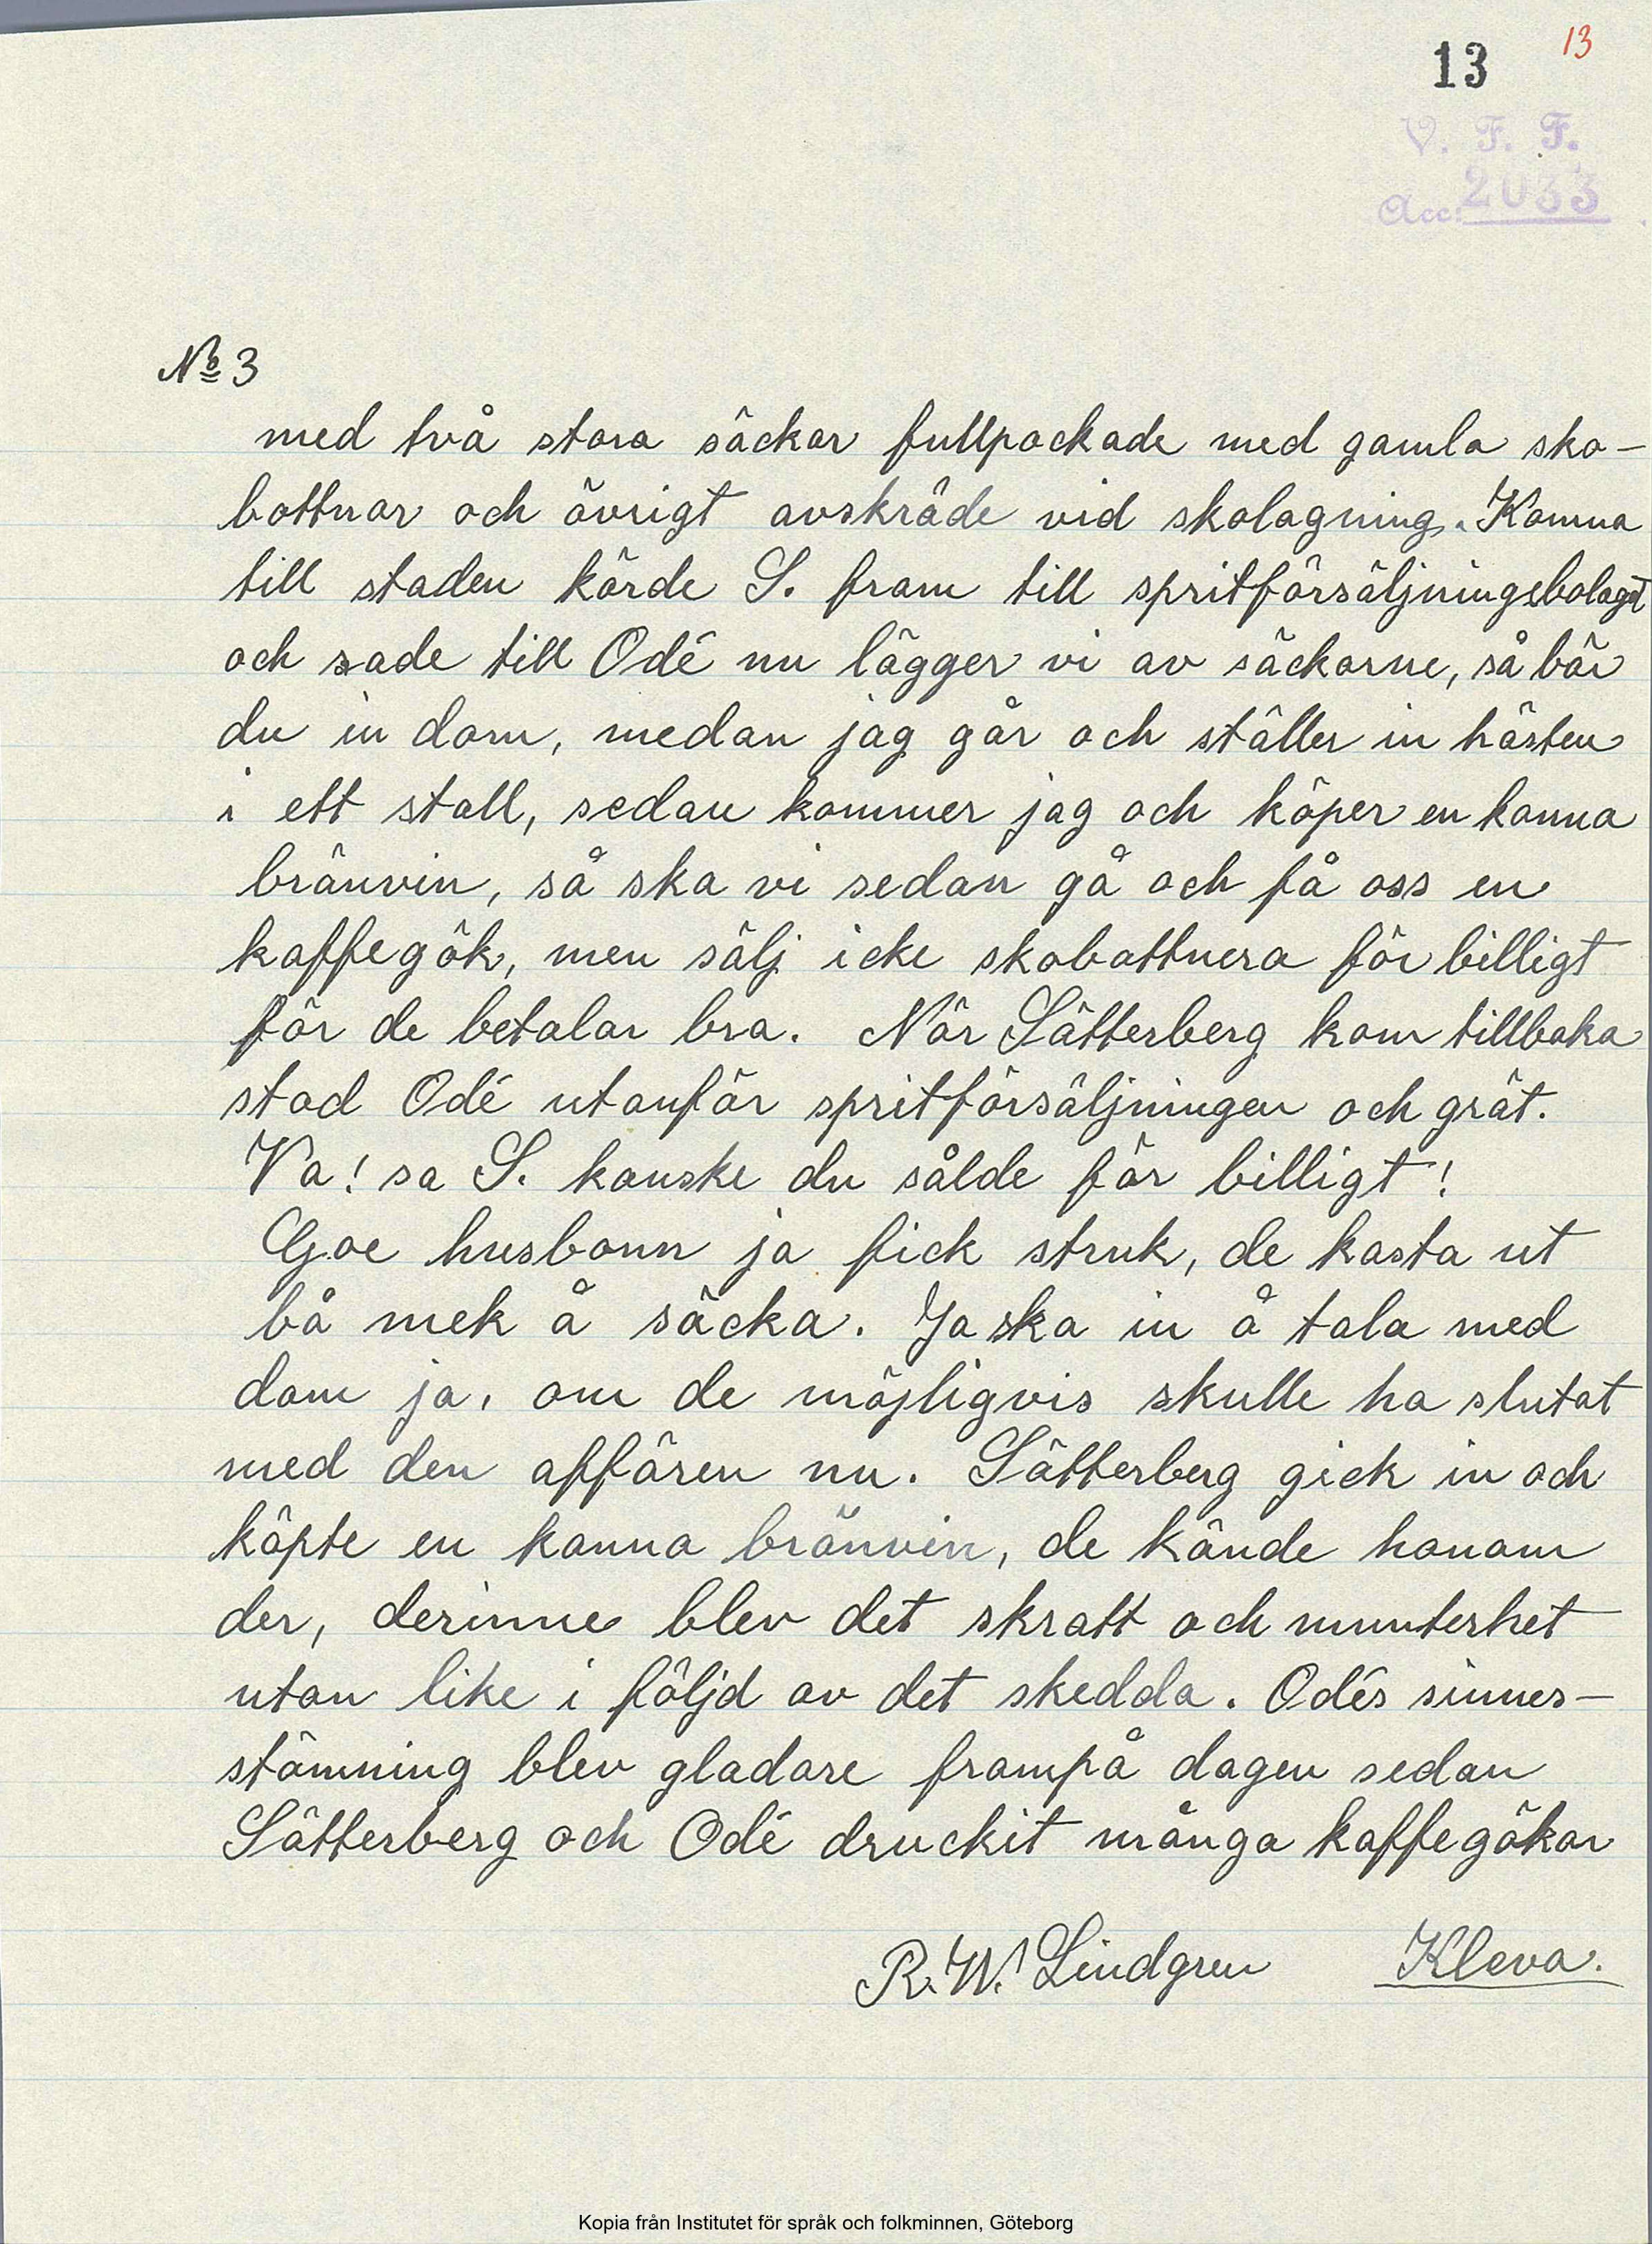 13 13
V. F. F.
Acc: 2033
No 3
med två stora säckar fullpackade med gamla sko-
bottnar och övrigt avskräde vid skolagning. Komna
till staden körde S. fram till spritförsäljningsbolaget
och sade till Odé nu lägger vi av säckarne, så bär
du in dom, medan jag går och ställer in hästen
i ett stall, sedan kommer jag och köper en kanna
bränvin, så ska vi sedan gå och få oss en
kaffegök, men sälj icke skobottnera för billigt
för de betalar bra. När Sätterberg kom tillbaka
stod Odé utanför spritförsäljningen och grät.
Va! sa S. kanske du sålde för billigt!
Goe husbonn ja fick struk, de kasta ut
bå mek å säcka. Ja ska in å tala med
dom ja, om de möjligvis skulle ha slutat
med den affären nu. Sätterberg gick in och
köpte en kanna bränvin, de kände honom
der, derinne blev det skratt och munterhet
utan like i följd av det skedda. Odés sinnes-
stämning blev gladare frampå dagen sedan
Sätterberg och Odé druckit många kaffegökar
R. W. Lindgren Kleva.
Kopia från Institutet för språk och folkminnen, Göteborg